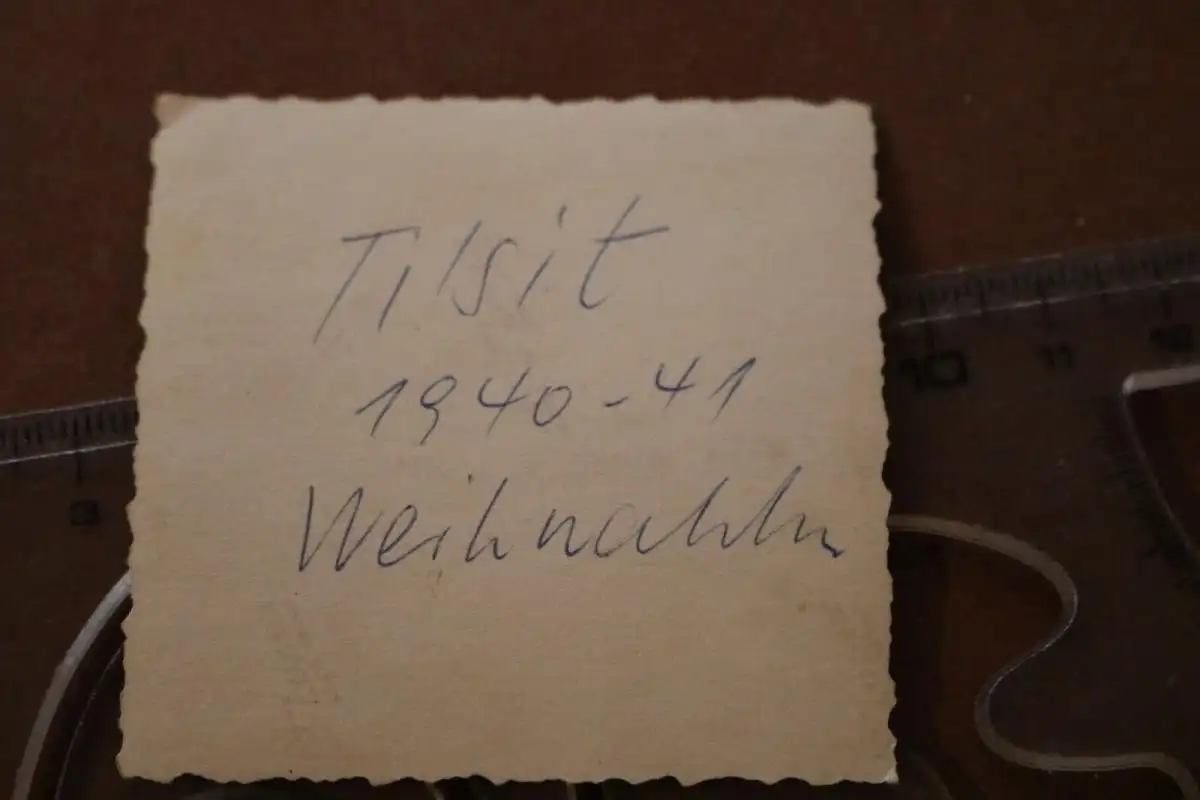 Tilsit
1940-41
Weihnachten
10
11
12